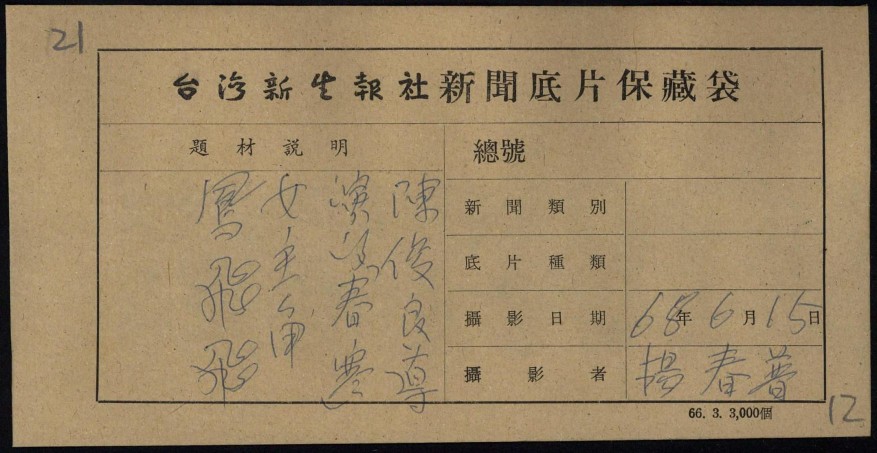 21
台湾新生報社新聞底片保藏袋
題材説明
陳俊良導
演的春寒
女主角
鳳飛飛
總號
新聞類別
底片種類
攝影日期 68年6月15日
攝影者 楊春普
66. 3. 3,000個
12